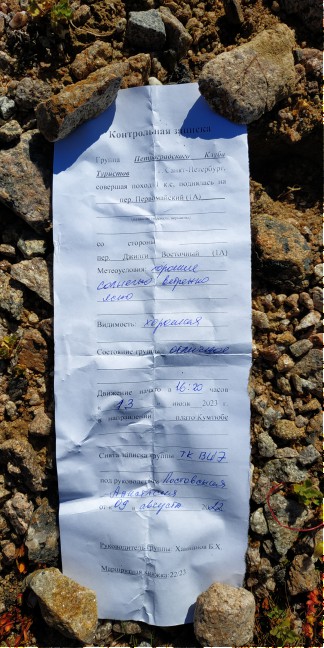 Контрольная записка
Группа Петроградского Клуба
Туристов, Санкт-Петербург,
совершая поход 1 к.с. поднялась на
пер. Первомайский (1А)
со стороны
пер. Джилги Восточный (1А)
Метеоусловия хорошие
солнечно ветренно
ясно
Видимость: хорошая
Состояние группы отличное
Движение начато в 16:20 часов
13 июля 2023 г
в направлении плато Кумтюбе
Снята записка группы ТК ВЦ
под руководством Московская
Анастасия
от « 09 » август 22
Руководитель группы: Х
Маршрутная книжка 22/23